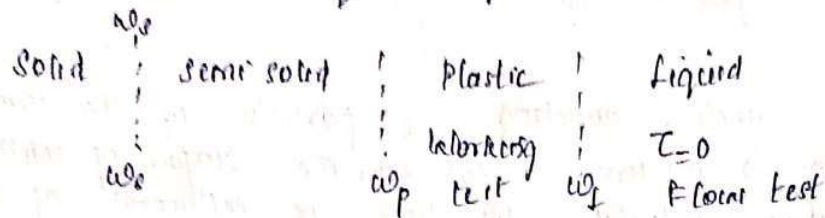 ws
solid semi solid plastic Liquid
working τ=0
ws wp test wl Flow test